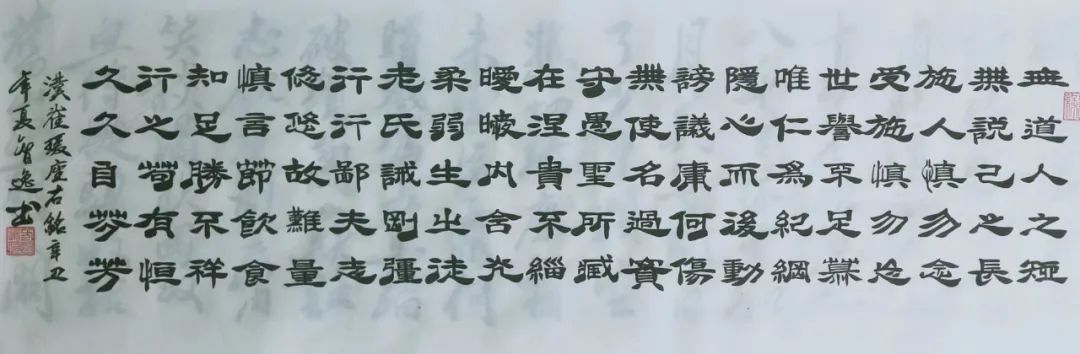 無道人之短
無說己之長
施人慎勿念
受施慎勿忘
世譽不足慕
唯仁為紀綱
隱心而後動
謗議庸何傷
無使名過實
守愚聖所臧
在涅貴不緇
曖曖內含光
柔弱生之徒
老氏誡剛彊
行行鄙夫志
悠悠故難量
慎言節飲食
知足勝不祥
行之苟有恒
久久自芬芳
漢崔瑗座右銘辛丑
年夏智逸书